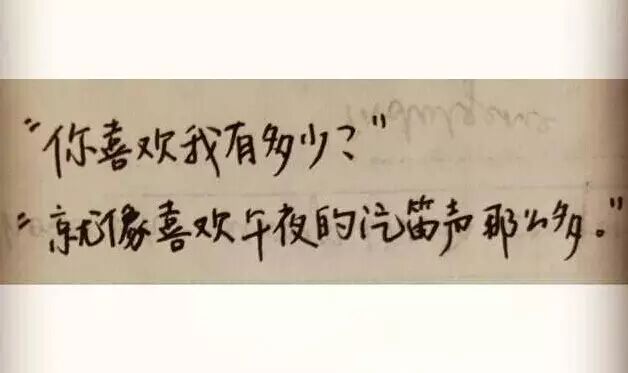 “你喜欢我有多少？”
“就像喜欢午夜的汽笛声那么多。”